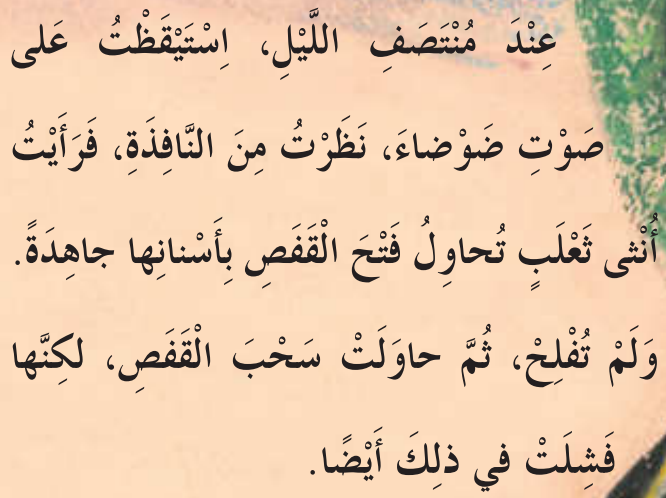 عِنْدَ مُنْتَصَفِ اللَّيْلِ، اِسْتَيْقَظْتُ عَلى
صَوْتِ ضَوْضاءَ، نَظَرْتُ مِنَ النَّافِذَةِ، فَرَأَيْتُ
أُنْثى ثَعْلَبٍ تُحاوِلُ فَتْحَ الْقَفَصِ بِأَسْنانِها جاهِدَةً.
وَلَمْ تُفْلِحْ، ثُمَّ حاوَلَتْ سَحْبَ الْقَفَصِ، لكِنَّها
فَشِلَتْ في ذلِكَ أَيْضًا.